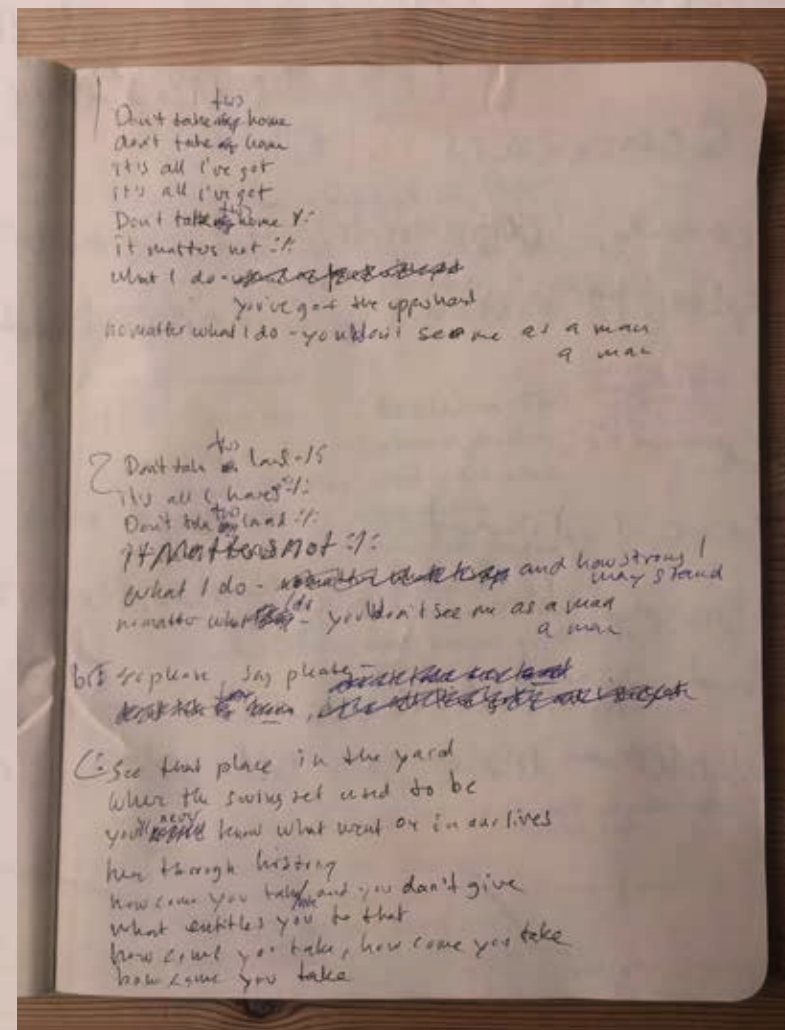 1
this
Don't take my home
don't take my home
it's all I've got
it's all I've got
this
Don't take my home :/:
it matters not :/:
what I do -
you've got the upperhand
no matter what I do - you don't see me as a man
a man
2 this
Don't take my land :/:
it's all I have :/:
this
Don't take my land :/:
it Matters not :/:
what I do - and how strong I
may stand
do
no matter what - you don't see me as a man
a man
so please, say please -
C: See that place in the yard
where the swing set used to be
never
you'll know what went on in our lives
here through history
how come you take, and you don't give
what entitles you to that
how come you take, how come you take
how come you take